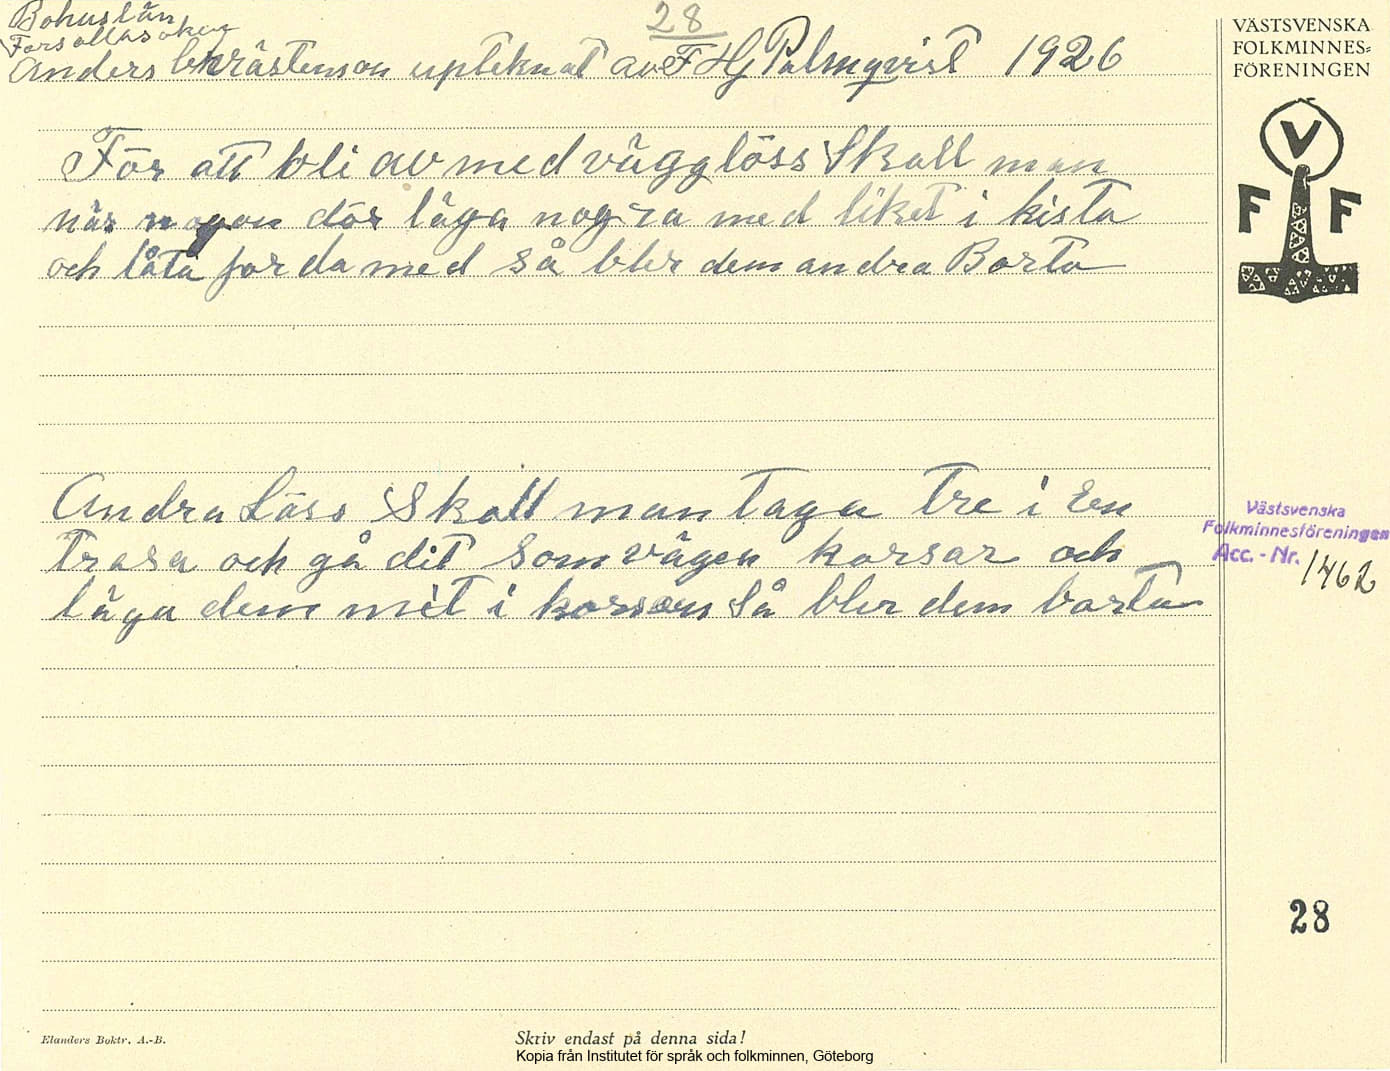 28
Bohuslän
Forsallas
Anders upteknat av F Hj Palmqvist 1926
För att bli av med vägglöss Skall man
när nogon dör läga nog ra med liket i kista
och låta forda med Så bler dem andra Borta
Andra Löss Skall man Taga Tre i En
Trasa och gå dit Som vägen korsar och
läga dem mit i korsen Så bler dem borta
VÄSTSVENSKA
FOLKMINNES-
FÖRENINGEN
V
F F
Västsvenska
Folkminnesföreningen
Acc.-Nr. 1462
28
Elanders Boktr. A.-B.
Skriv endast på denna sida!
Kopia från Institutet för språk och folkminnen, Göteborg